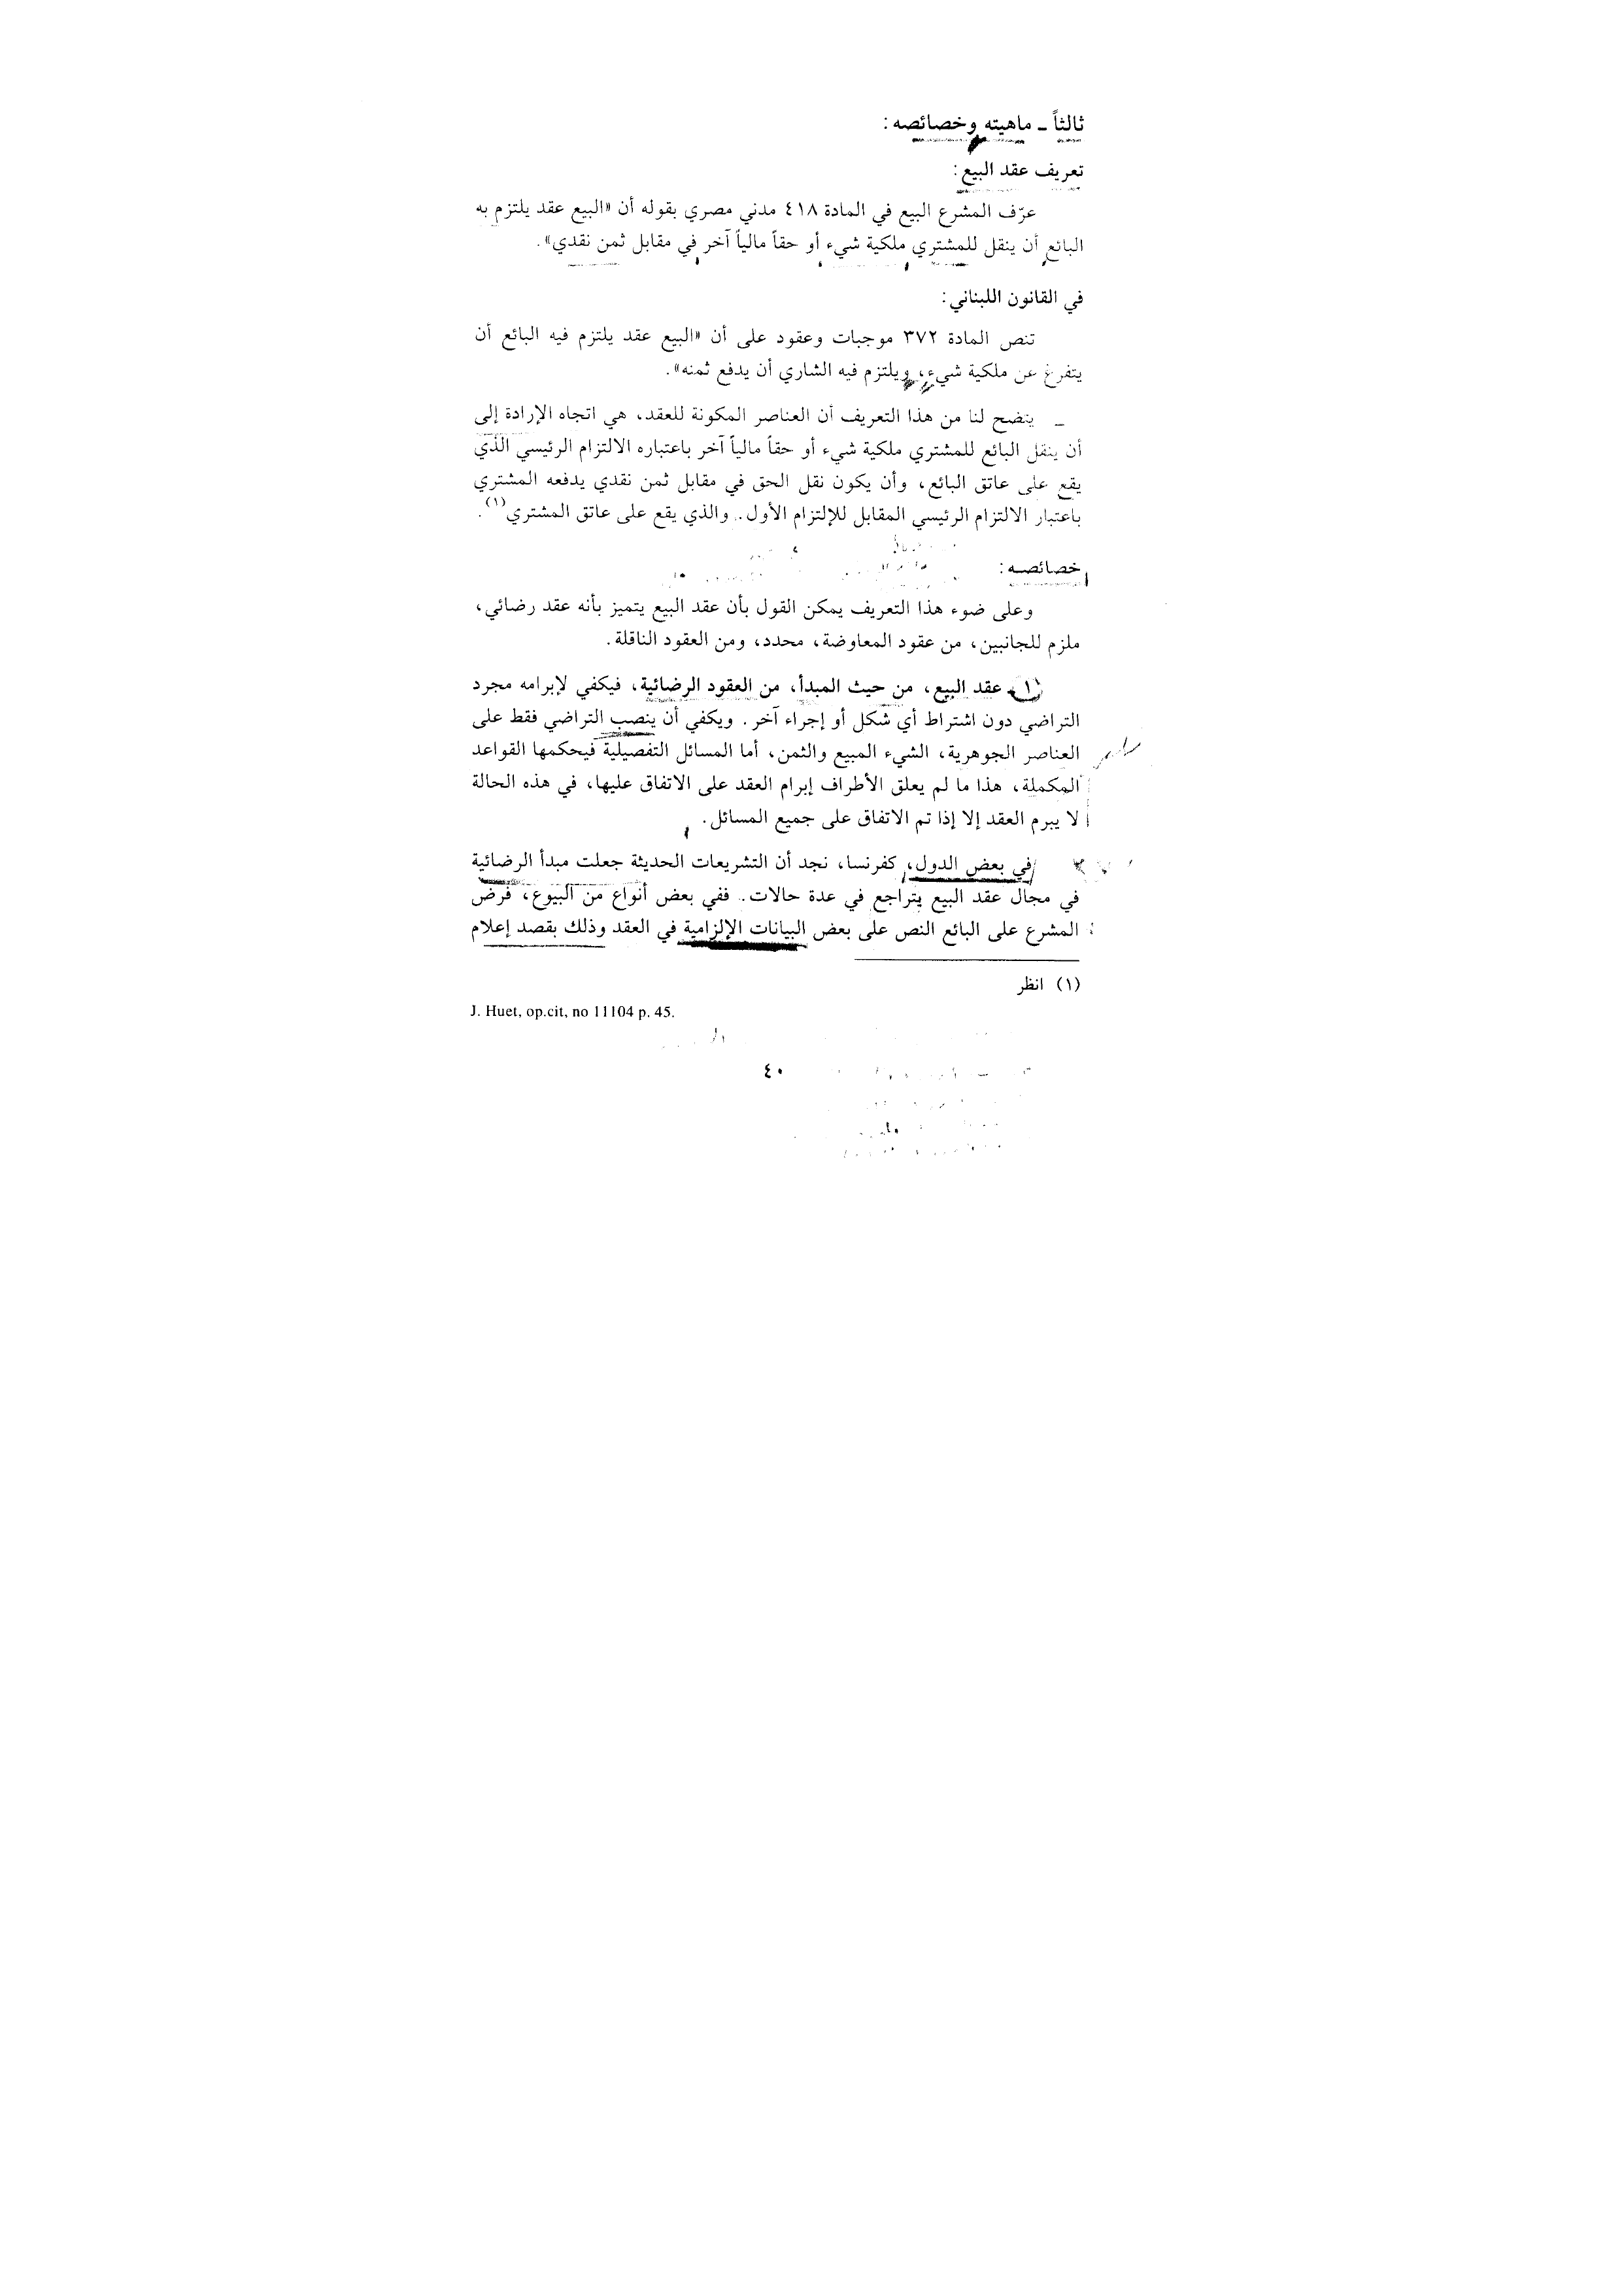 ثالثاً ـ ماهيته وخصائصه:
تعريف عقد البيع:
عرّف المشرع البيع في المادة ٤١٨ مدني مصري بقوله أن «البيع عقد يلتزم به
البائع أن ينقل للمشتري ملكية شيء أو حقاً مالياً آخر في مقابل ثمن نقدي».
في القانون اللبناني:
تنص المادة ٣٧٢ موجبات وعقود على أن «البيع عقد يلتزم فيه البائع أن
يتفرغ عن ملكية شيء، ويلتزم فيه الشاري أن يدفع ثمنه».
ـ يتضح لنا من هذا التعريف أن العناصر المكونة للعقد، هي اتجاه الإرادة إلى
أن ينقل البائع للمشتري ملكية شيء أو حقاً مالياً آخر باعتباره الالتزام الرئيسي الذي
يقع على عاتق البائع، وأن يكون نقل الحق في مقابل ثمن نقدي يدفعه المشتري
باعتبار الالتزام الرئيسي المقابل للإلتزام الأول. والذي يقع على عاتق المشتري(١).
خصائصه:
وعلى ضوء هذا التعريف يمكن القول بأن عقد البيع يتميز بأنه عقد رضائي،
ملزم للجانبين، من عقود المعاوضة، محدد، ومن العقود الناقلة.
١ـ عقد البيع، من حيث المبدأ، من العقود الرضائية، فيكفي لإبرامه مجرد
التراضي دون اشتراط أي شكل أو إجراء آخر. ويكفي أن ينصب التراضي فقط على
العناصر الجوهرية، الشيء المبيع والثمن، أما المسائل التفصيلية فيحكمها القواعد
المكملة، هذا ما لم يعلق الأطراف إبرام العقد على الاتفاق عليها، في هذه الحالة
لا يبرم العقد إلا إذا تم الاتفاق على جميع المسائل.
في بعض الدول، كفرنسا، نجد أن التشريعات الحديثة جعلت مبدأ الرضائية
في مجال عقد البيع يتراجع في عدة حالات. ففي بعض أنواع من البيوع، فرض
المشرع على البائع النص على بعض البيانات الإلزامية في العقد وذلك بقصد إعلام
(١) انظر
J. Huet, op.cit, no 11104 p. 45.
٤٠